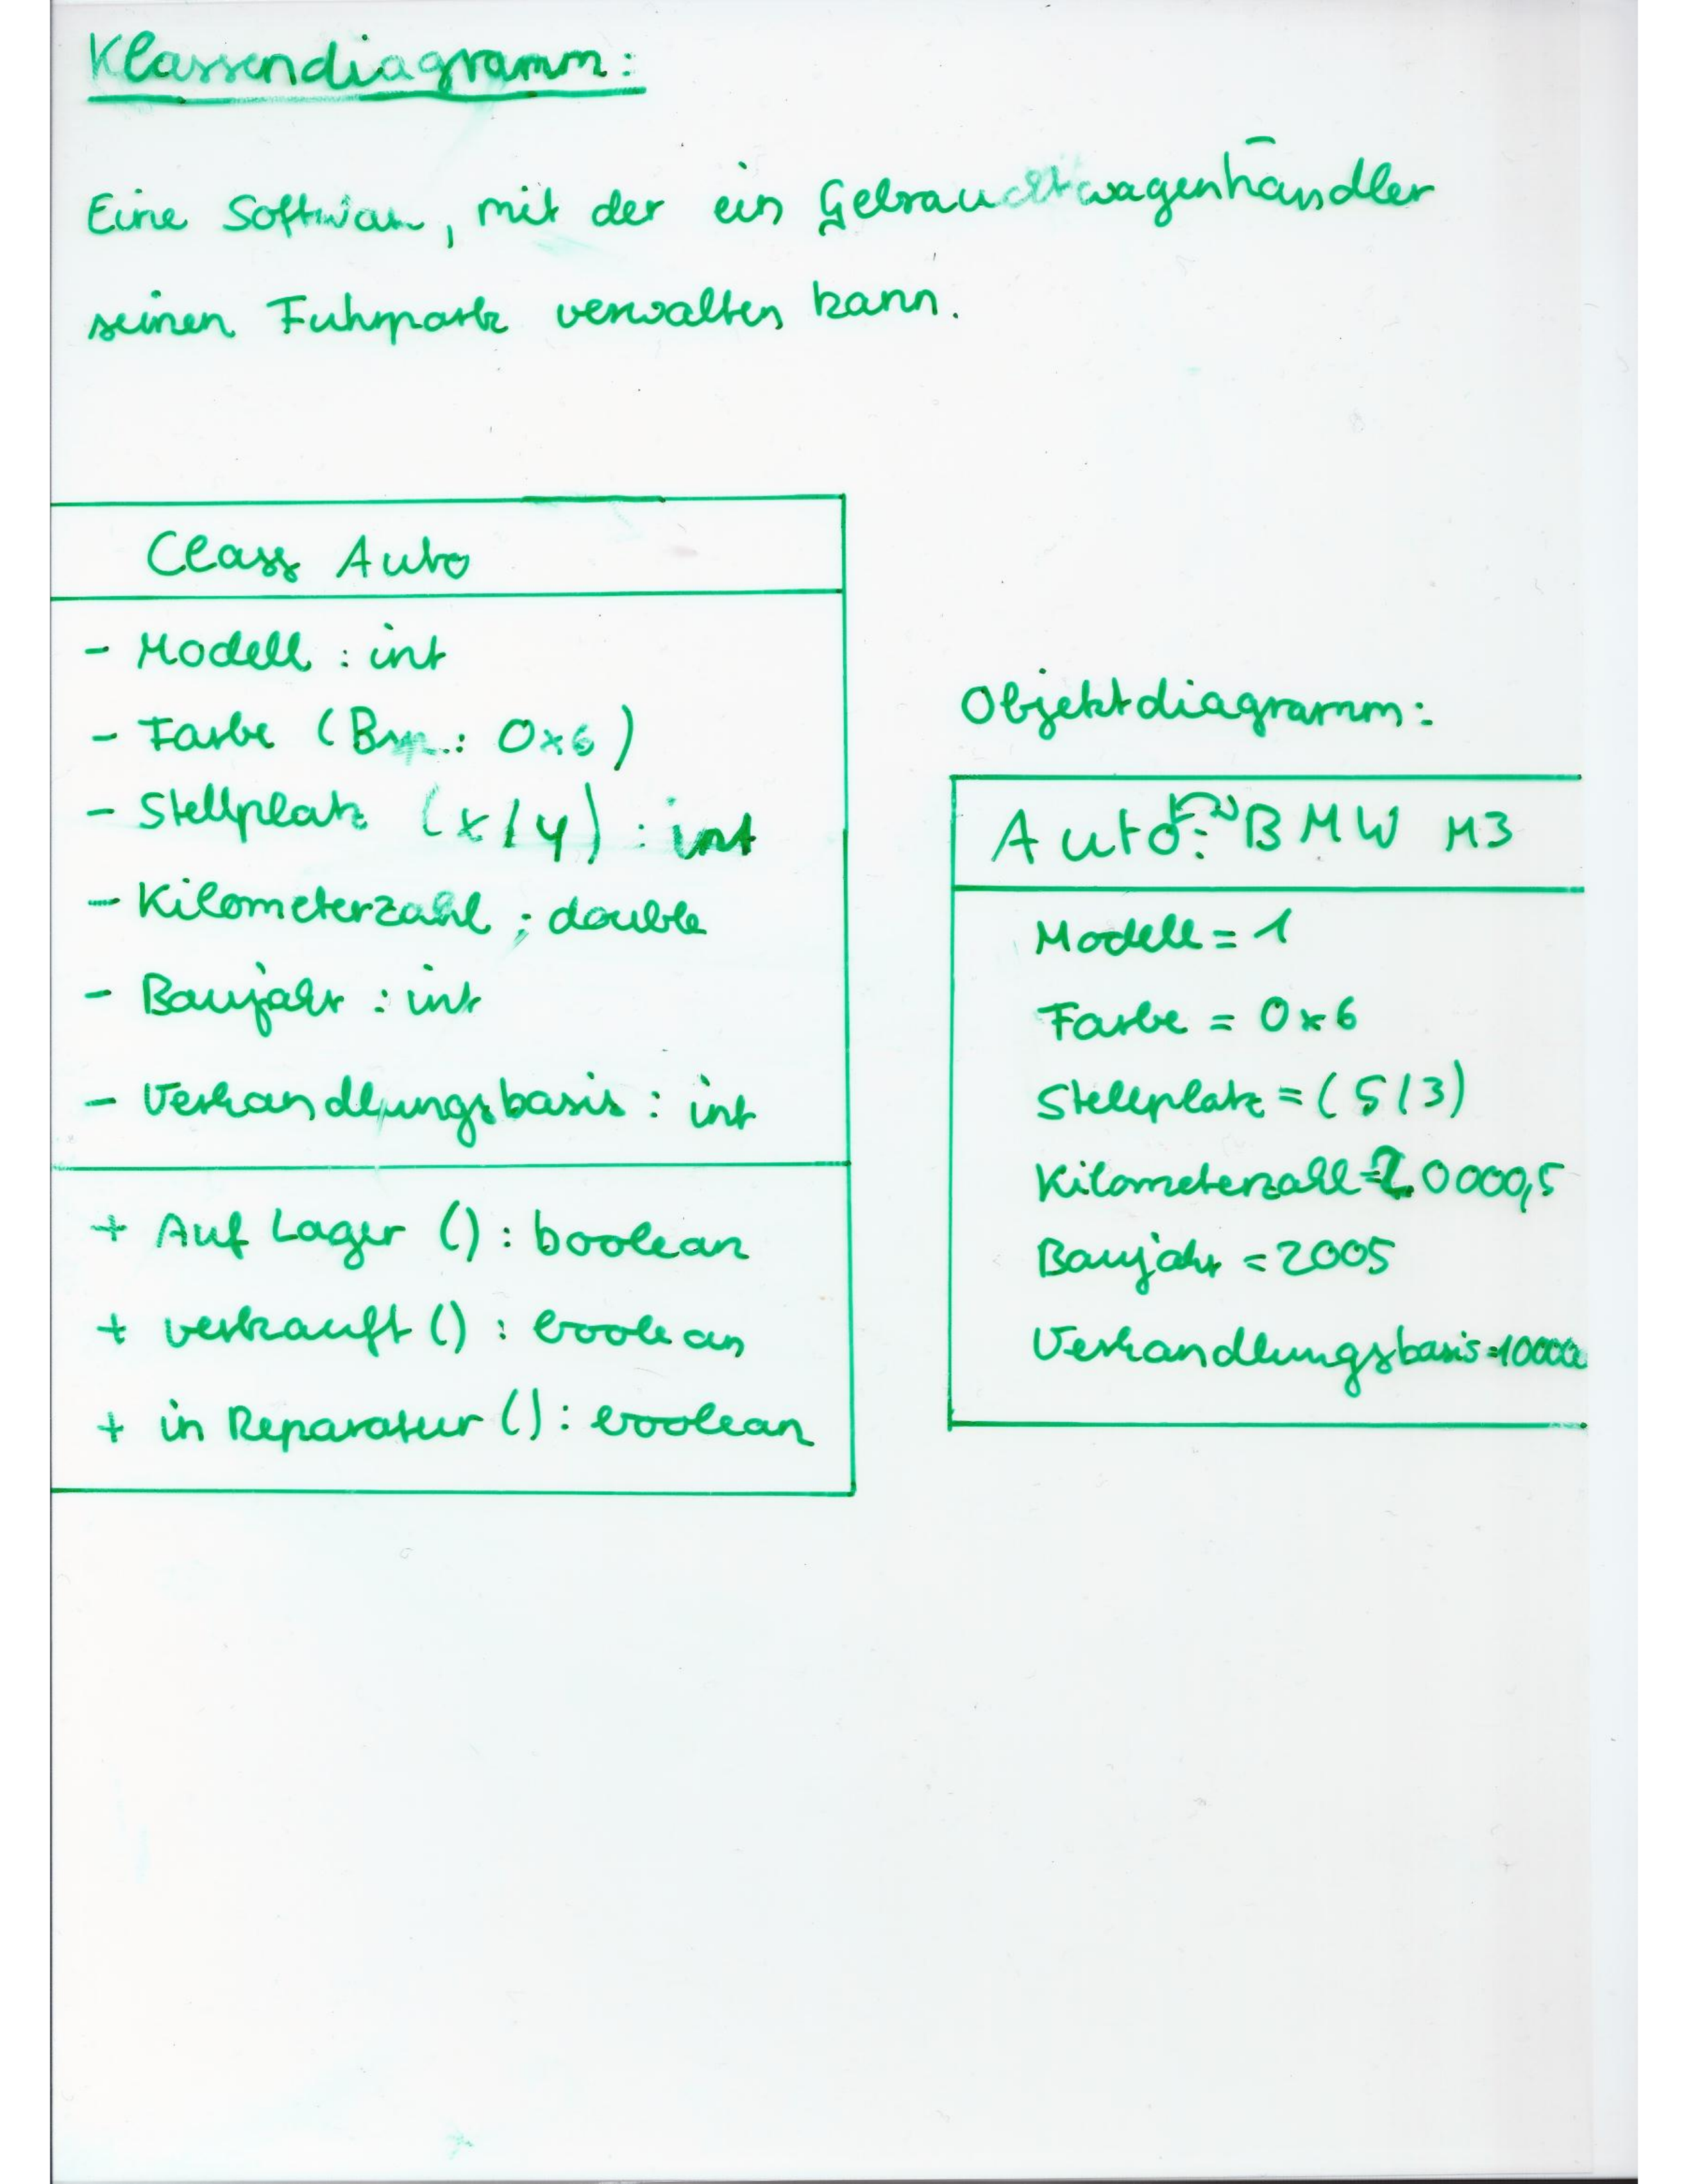 Klassendiagramm:
Eine Software, mit der ein Gebrauchtwagenhändler
seinen Fuhrpark verwalten kann.
Class Auto
- Modell : int
- Farbe (Bsp.: 0x6)
- Stellplatz (x/y) : int
- Kilometerzahl ; double
- Baujahr : int
- Verhandlungsbasis : int
+ Auf Lager () : boolean
+ verkauft () : boolean
+ in Reparatur () : boolean
Objektdiagramm:
Auto: BMW M3
Modell = 1
Farbe = 0x6
Stellplatz = (5/3)
Kilometerzahl = 20000,5
Baujahr = 2005
Verhandlungsbasis =